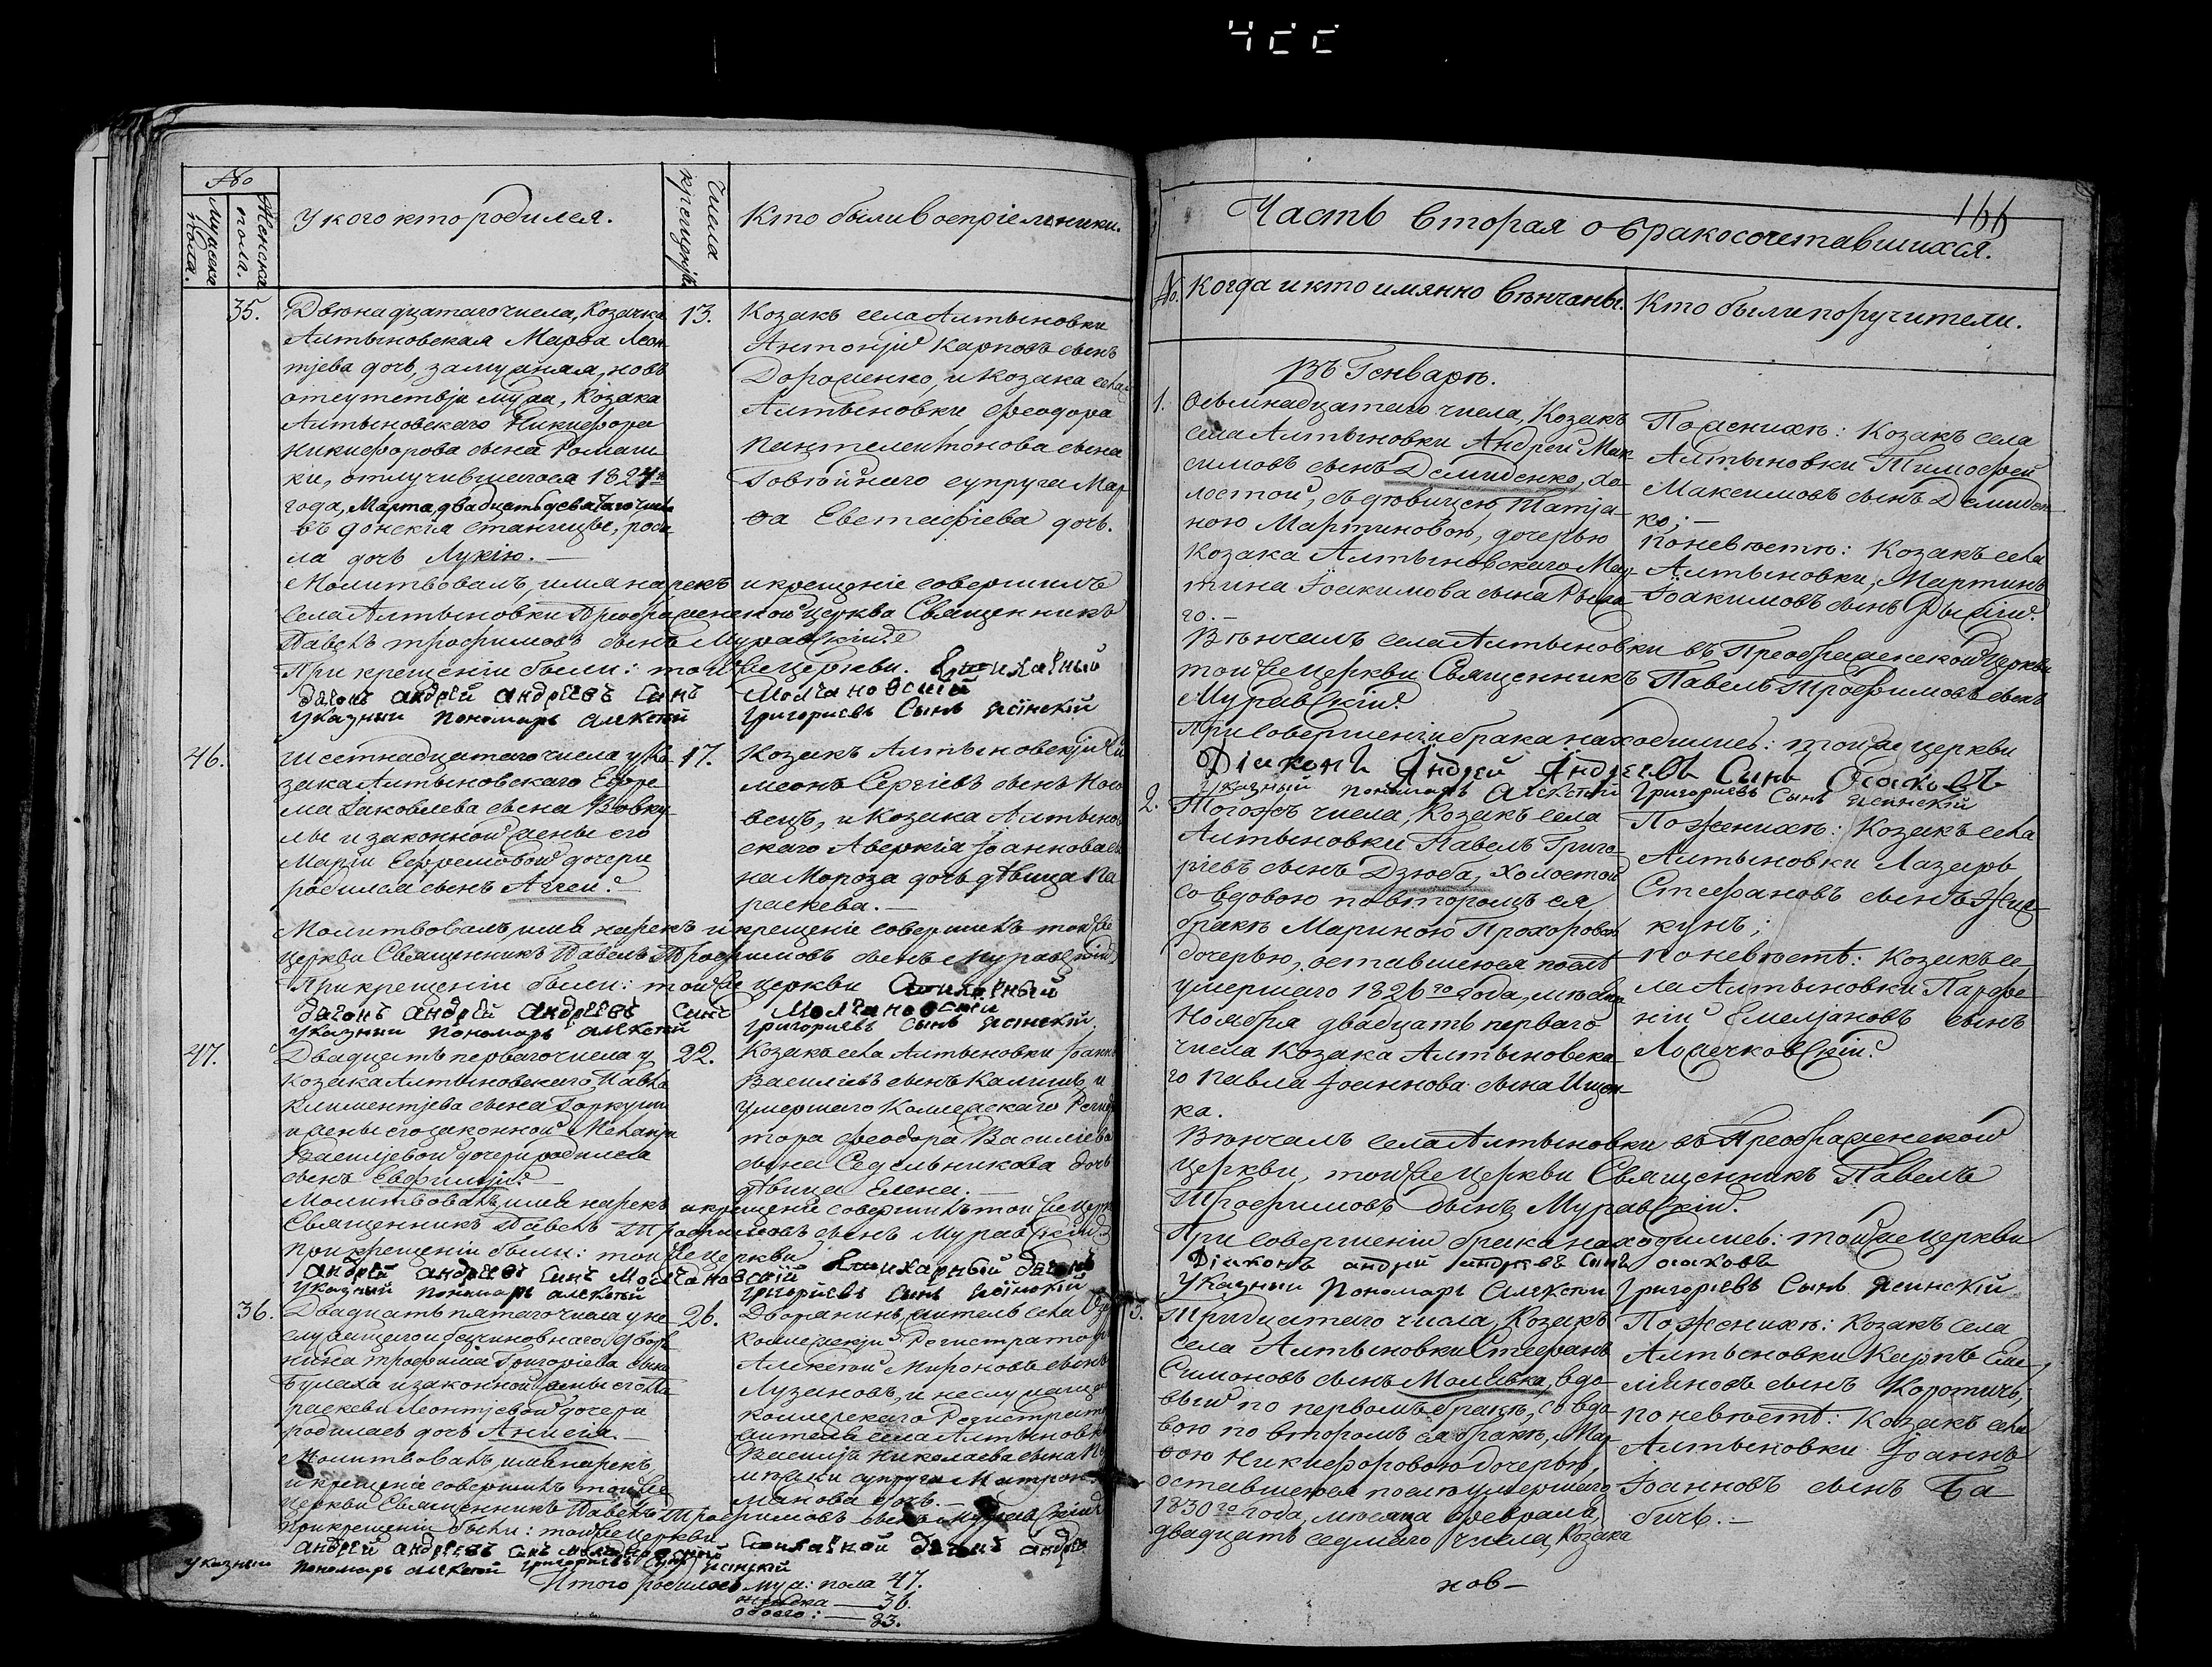 422
№
Мужеска пола.
Женска пола.
У кого кто родился.
Числа крещенія
Кто были воспріемники.
35.
Двенадцатаго числа, Козачка
Алтыновская Марфа Леон-
тіева дочь, замужняя, но въ
отсутствіи мужа, Козака
Алтыновскаго Никифора
Никифорова сына Ромаш-
ки, отлучившагося 1827го
года, Марта двадцать девятаго числа
въ донскія станицы, роди-
ла дочь Лукію.—
13.
Козакъ села Алтыновки
Антоній Карповъ сынъ
Дорошенко, и Козака села
Алтыновки Феодора
Пантелеймонова сына
супруга Мар-
фа Евстафіева дочь.
Молитвовалъ, имя нарекъ и крещеніе совершилъ
села Алтыновки Преображенской Церкви Священникъ
Павелъ Трофимовъ сынъ Муравскій.
При крещеніи были: той же Церкви.
андрей андреевъ синъ Молчановскій
указный пономарь алексей григориевъ Сынъ Ясінскій
46.
Шестнадцатаго числа у Ко-
зака Алтыновскаго Ефре-
ма Іаковлева сына Вовку-
лы и законной жены его
Маріи Ефремовой дочери
родился сынъ Аггей.
17.
Козакъ Алтыновскій Си
меонъ Сергіевъ сынъ Носо
вецъ, и Козака Алтынов
скаго Аверкія Іоаннова сы
на Мороза дочь дѣвица Па
раскева.—
Молитвовалъ, имя нарекъ и крещеніе совершилъ той же
Церкви Священникъ Павелъ Трофимовъ сынъ Муравскій.
При крещеніи были: той же Церкви
андрей андреевъ синъ Молчановскій
указный пономарь алексей григориевъ Сынъ Ясінскій
47.
Двадцать перваго числа у
Козака Алтыновскаго Павла
Климентіева сына Горкуши
и жены его законной Меланіи
Васильевой дочери родился
сынъ Евфимій.
22.
Козакъ села Алтыновки Іоаннъ
Василіевъ сынъ и
умершаго Коллежскаго Регис
тора Феодора Василіева
сына Седельникова дочь
дѣвица Елена.—
Молитвовалъ, имя нарекъ и крещеніе совершилъ той же Церк
Священникъ Павелъ Трофимовъ сынъ Муравскій.
При крещеніи были: той же Церкви
андрей андреевъ синъ Молчановскій
указный пономарь алексей григориевъ Сынъ Ясінскій
36.
Двадцать пятаго числа у не
служащаго и безчиновнаго дворя
нина Трофима Григоріева сына
Булаха и законной жены его Па
раскевы Леонтіевой дочери
родилась дочь Анисія.—
26.
Дворянинъ, житель села
Коллежскій Регистраторъ
Алексей Мироновъ сынъ
Лузановъ, и неслужащ
коллежскаго Регистрато
жителя села Алтыновк
Василія Николаева сына
супруга Матрона
дочь.—
Молитвовалъ, имя нарекъ
и крещеніе совершилъ той же
Церкви Священникъ Павелъ Трофимовъ сынъ Муравскій
При крещеніи были: той же Церкви
андрей андреевъ синъ
указный пономарь алексей григориевъ Сынъ Ясінскій
Итого родилось муж: пола 47.
женска — 36.
обоего: — 83.
166
Часть вторая о бракосочетавшихся.
№.
Когда и кто имянно вѣнчаны.
Кто были поручители.
Въ Генварѣ.
1.
Осьмнадцатаго числа, Козакъ
села Алтыновки Андрей Мак-
симовъ сынъ Демиденко, хо-
лостой, съ дѣвицею Татіа-
ною Мартиновою, дочерью
Козака Алтыновскаго Мар-
тина Іоакимова сына Рыжа-
го.—
По женихѣ: Козакъ села
Алтыновки Тимофей
Максимовъ сынъ Демиден-
ко;—
по невѣстѣ: Козакъ села
Алтыновки, Мартинъ
Іоакимовъ сынъ Рыжій.
Вѣнчалъ села Алтыновки въ Преображенской Церкви
той же Церкви Священникъ Павелъ Трофимовъ сынъ
Муравскій.
При совершеніи брака находились: той же церкви
Діяконъ Андрей Андреевъ Сынъ Осаховъ
Указный пономарь Алексей Григориевъ Сынъ Ясинскій
2.
Тогожъ числа, Козакъ села
Алтыновки Павелъ Григо-
ріевъ сынъ Дзюба, холостой
со вдовою по второмъ ея
бракѣ Мариною Прохоровою
дочерью, оставшеюся послѣ
умершаго 1826го года, мѣсяца
Ноября двадцать перваго
числа Козака Алтыновска
го Павла Іоаннова сына Ищен-
ка.
По женихѣ: Козакъ села
Алтыновки Лазарь
Стефановъ сынъ Жид-
кунъ;
по невѣстѣ: Козакъ се-
ла Алтыновки Парфе-
ній Емеліановъ сынъ
Ложечковскій.
Вѣнчалъ села Алтыновки въ Преображенской
Церкви, той же Церкви Священникъ Павелъ
Трофимовъ сынъ Муравскій.
При совершеніи брака находились: той же Церкви
Діяконъ андрей андреевъ Синъ осаховъ
Указный Пономарь Алексей Григориевъ Сынъ Ясинскій
3.
Тридцатаго числа, Козакъ
села Алтыновки Стефанъ
Симоновъ сынъ Малявка, вдо-
вый по первомъ бракѣ, со вдо
вою по второмъ ея бракѣ, Мар
фою Никифоровою дочерью,
оставшеюся послѣ умершаго
1830го года, мѣсяца Февраля,
двадцать седьмаго числа, Козака
По женихѣ: Козакъ села
Алтыновки Карпъ Еме
ліяновъ сынъ Коротичь,
по невѣстѣ: Козакъ села
Алтыновки Іоаннъ
Іоанновъ сынъ Ба
бичь.—
нов—